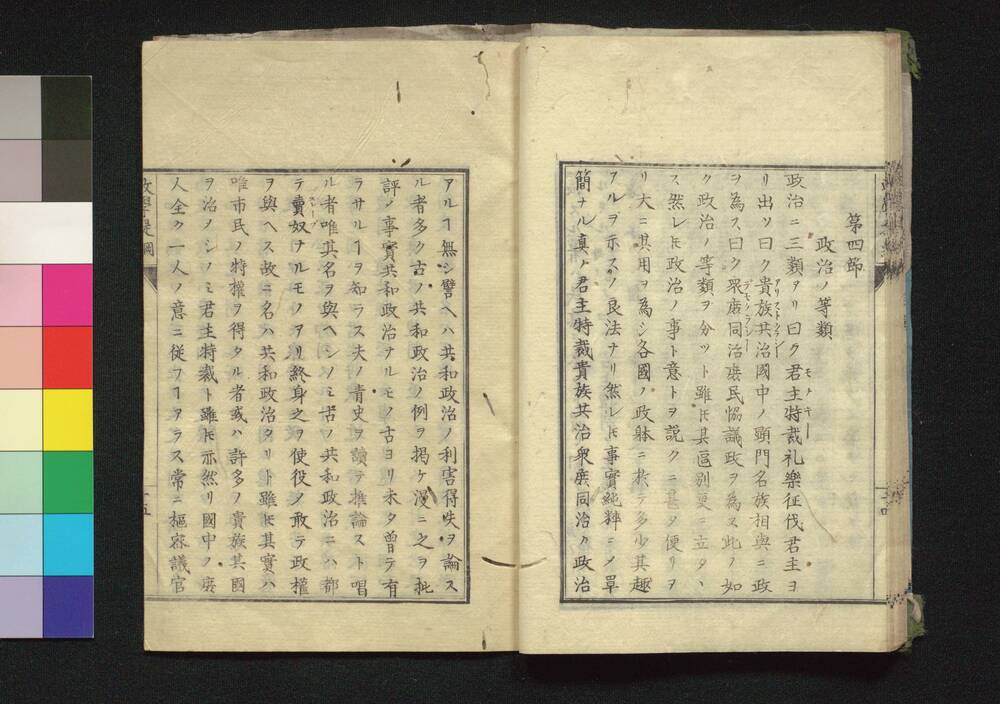 第四節
政治ノ等類
政治ニ三類アリ曰ク君主特裁礼樂征伐君主ヨ
モナキー
リ出ツ曰ク貴族共治國中ノ顕門名族相與ニ政
アリストクラシー
ヲ為ス曰ク衆庶同治庶民恊議政ヲ為ス此ノ如
デモクラシー
ク政治ノ等類ヲ分ツト雖𪜈其區別更ニ立タヽ
ス然レ𪜈政治ノ事ト意トヲ説クニ甚タ便リヲ
リ大ニ其用ヲ為シ各國ノ政躰ニ於テ多少其趣
アルヲ示スノ良法ナリ然レ𪜈事實純粹ニメ單
簡ナル真ノ君主特裁貴族共治衆庶同治ノ政治
アルヿ無シ譬ヘハ共和政治ノ利害得失ヲ論ス
ル者多ク古ノ共和政治ノ例ヲ掲ケ漫ニ之ヲ批
評ノ事實共和政治ナルモノ古ヨリ未タ曽テ有
ラサルヿヲ知ラス夫ノ青史ヲ讀テ推論スト唱
ル者唯其名ヲ與ヘシノミ古ノ共和政治ニハ都
テ賣奴ナルモノアリ終身之ヲ使役ノ敢テ政權
スレーブ
ヲ與ヘス故ニ名ハ共和政治タリト雖𪜈其實ハ
唯市民ノ特權ヲ得タル者或ハ許多ノ貴族其國
ヲ治ノシノミ君主特裁ト雖𪜈亦然リ國中ノ庶
人全ク一人ノ意ニ從フヿアラス常ニ樞密議官
政學提綱
十五